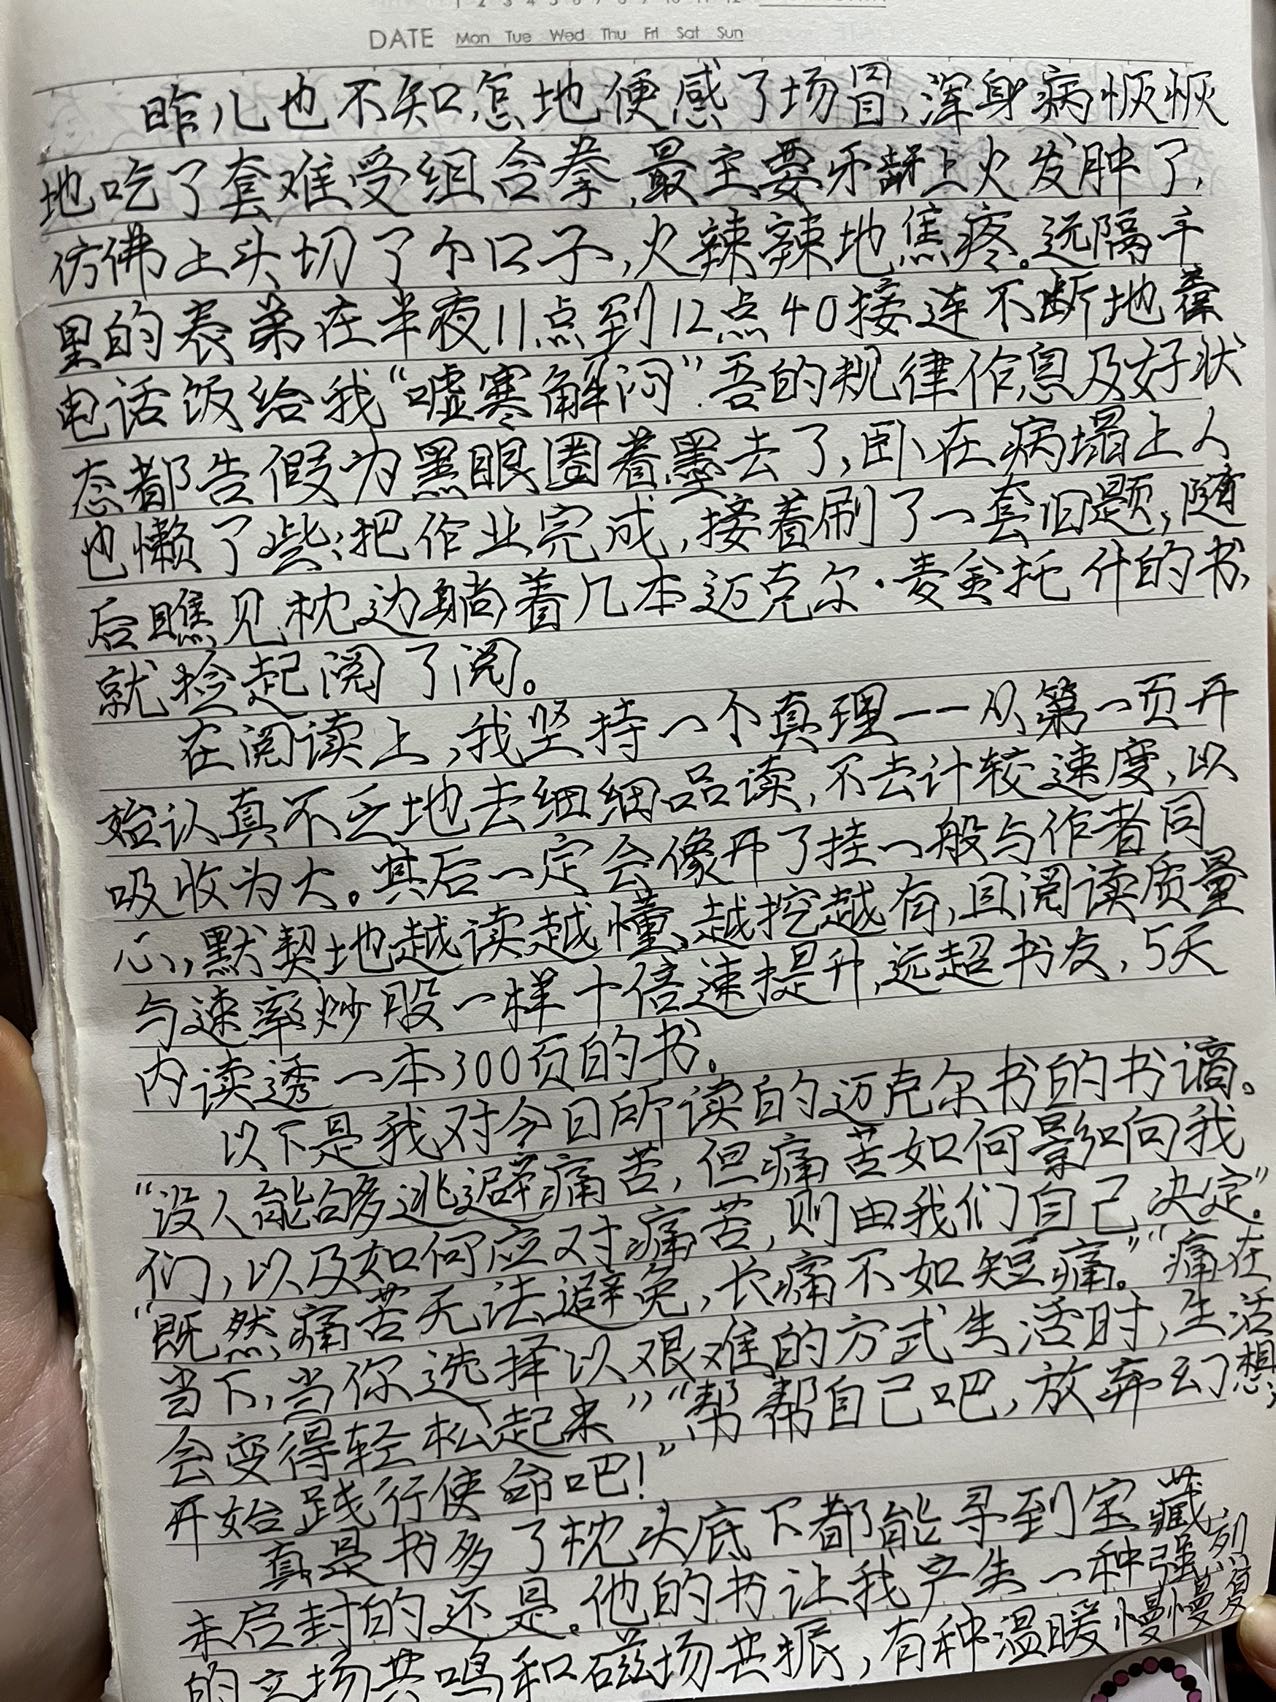 1 2 3 4 5 6 7 8 9 10 11 12
DATE Mon Tue Wed Thu Fri Sat Sun
昨儿也不知怎地便感了场冒,浑身病恹恹
地吃了套难受组合拳,最主要牙龈上火发肿了,
仿佛上头切了个口子,火辣辣地焦疼。远隔千
里的表弟在半夜11点到12点40接连不断地
电话饭给我“嘘寒解闷”.吾的规律作息及好状
态都告假为黑眼圈着墨去了,卧在病塌上人
也懒了些;把作业完成,接着刷了一套旧题,随
后瞧见枕边躺着几本迈克尔·麦金托什的书,
就捡起阅了阅。
在阅读上,我坚持一个真理——从第一页开
始认真不乏地去细细品读,不去计较速度,以
吸收为大。其后一定会像开了挂一般与作者同
心,默契地越读越懂,越挖越有,且阅读质量
与速率炒股一样十倍速提升,远超书友,5天
内读透一本300页的书。
以下是我对今日所读的迈克尔书的书谪。
“没人能够逃避痛苦,但痛苦如何影响我
们,以及如何应对痛苦,则由我们自己决定。”
“既然痛苦无法避免,长痛不如短痛。”“痛在
当下,当你选择以艰难的方式生活时,生活
会变得轻松起来”“帮帮自己吧,放弃幻想,
开始践行使命吧!”
真是书多了枕头底下都能寻到宝藏,
未启封的还是。他的书让我产生一种强烈
的立场共鸣和磁场共振,有种温暖慢慢复